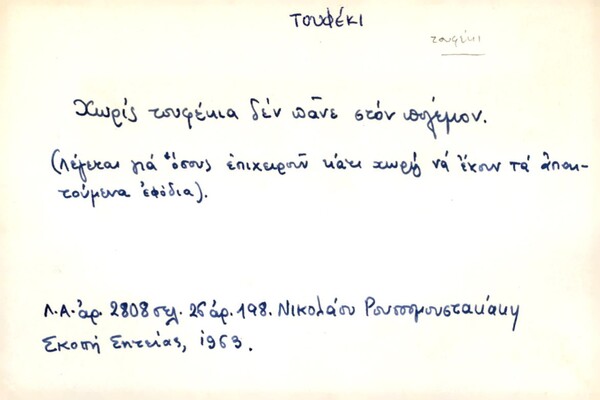 ΤΟΥΦΈΚΙ
τουφέκι
Χωρίς τουφέκια δέν πᾶνε στόν πόλεμον.
(Λέγεται γιά ὅσους ἐπιχειροῦν κάτι χωρίς νά ἔχουν τά ἀπαι-
τούμενα ἐφόδια).
Λ.Α. ἀρ. 2808 σελ. 26 ἀρ. 198. Νικολάου Ρουσσομουστακάκη
Σκοπή Σητείας, 1963.